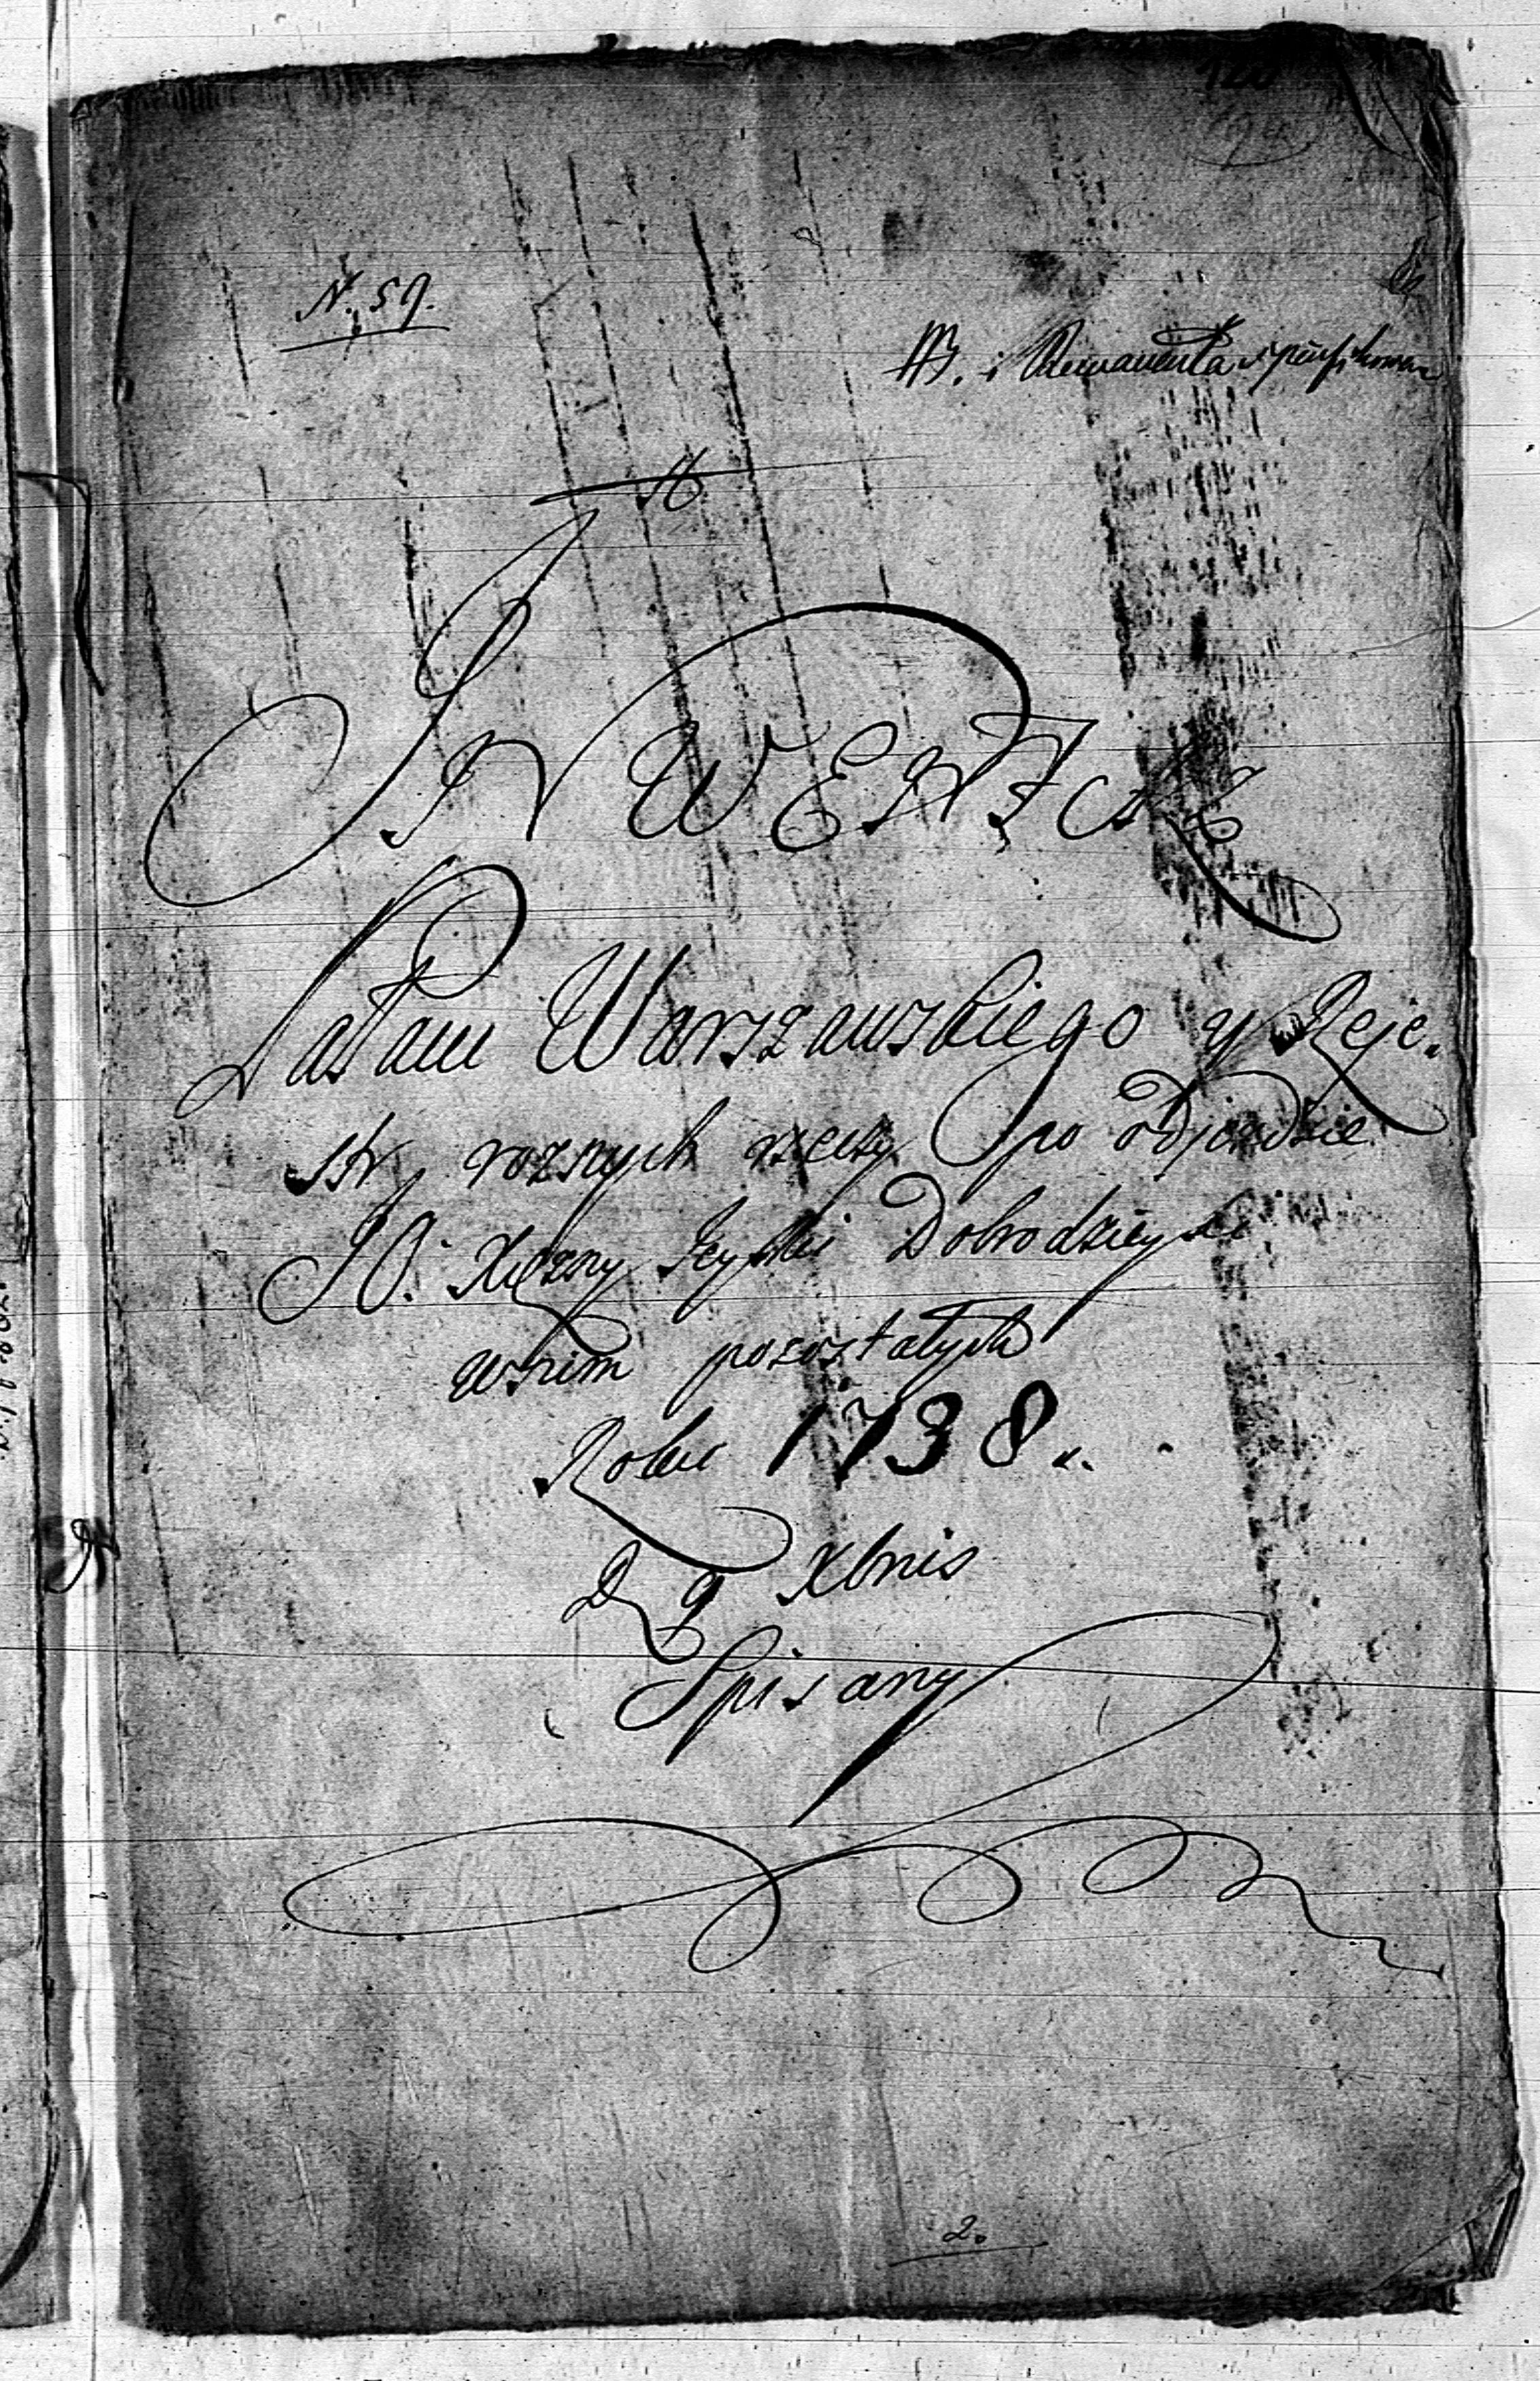 120
N. 59.
i Remanenta specyfikowane
16
INWENTARZ
Pałacu Warszawskiego y Reje.
str roznych rzeczy po odjezdzie
JO. Xięzny Jeymći Dobrodzieyki
wnim pozostałych
Roku 1738.
D 9 Xbris
Spisany
2.